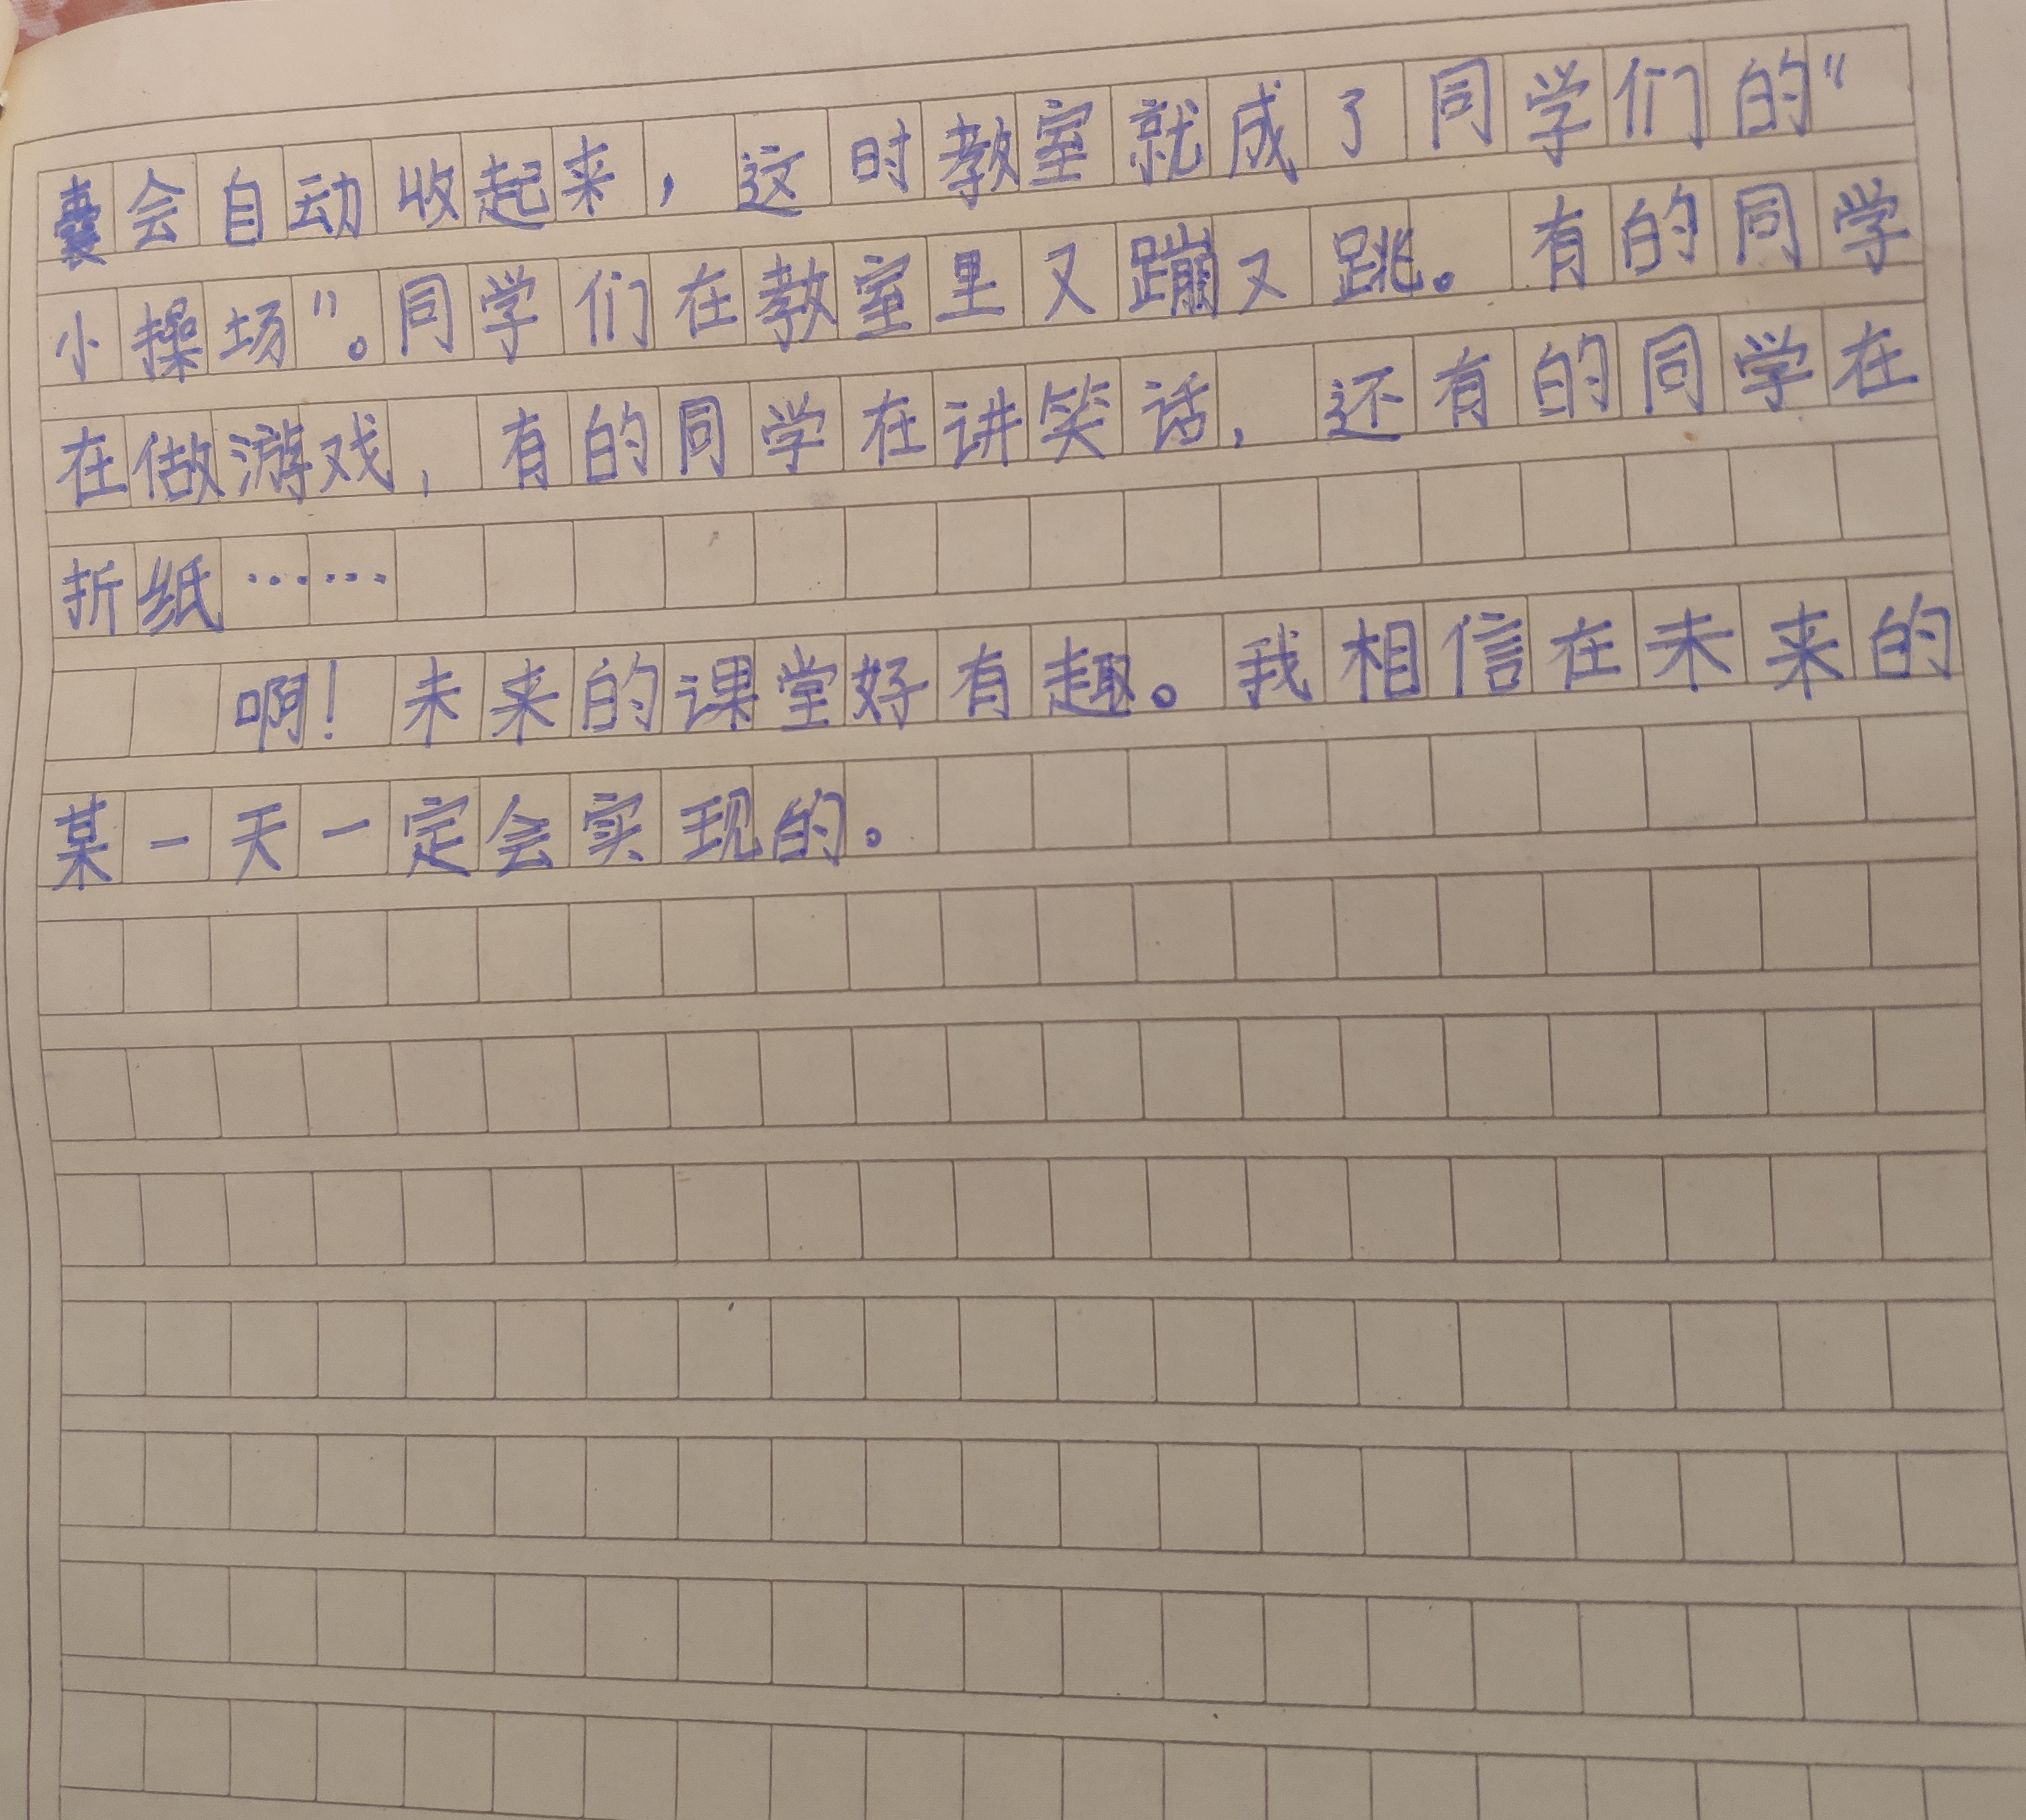 囊会自动收起来，这时教室就成了同学们的“
小操场”。同学们在教室里又蹦又跳。有的同学
在做游戏，有的同学在讲笑话，还有的同学在
折纸……
啊！未来的课堂好有趣。我相信在未来的
某一天一定会实现的。